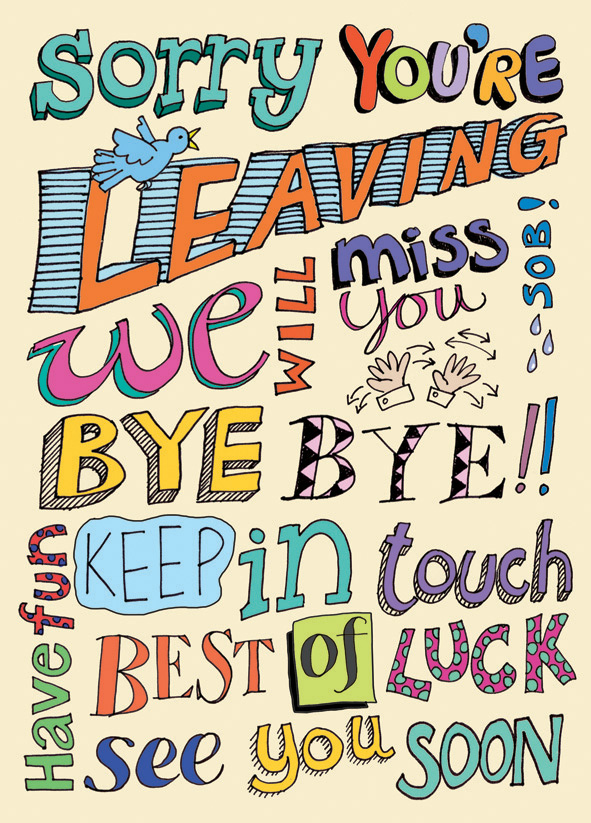 Sorry YOU'RE
LEAVING
we WILL miss you
SOB!
BYE BYE!!
Have fun
KEEP in touch
BEST of LUCK
see you SOON